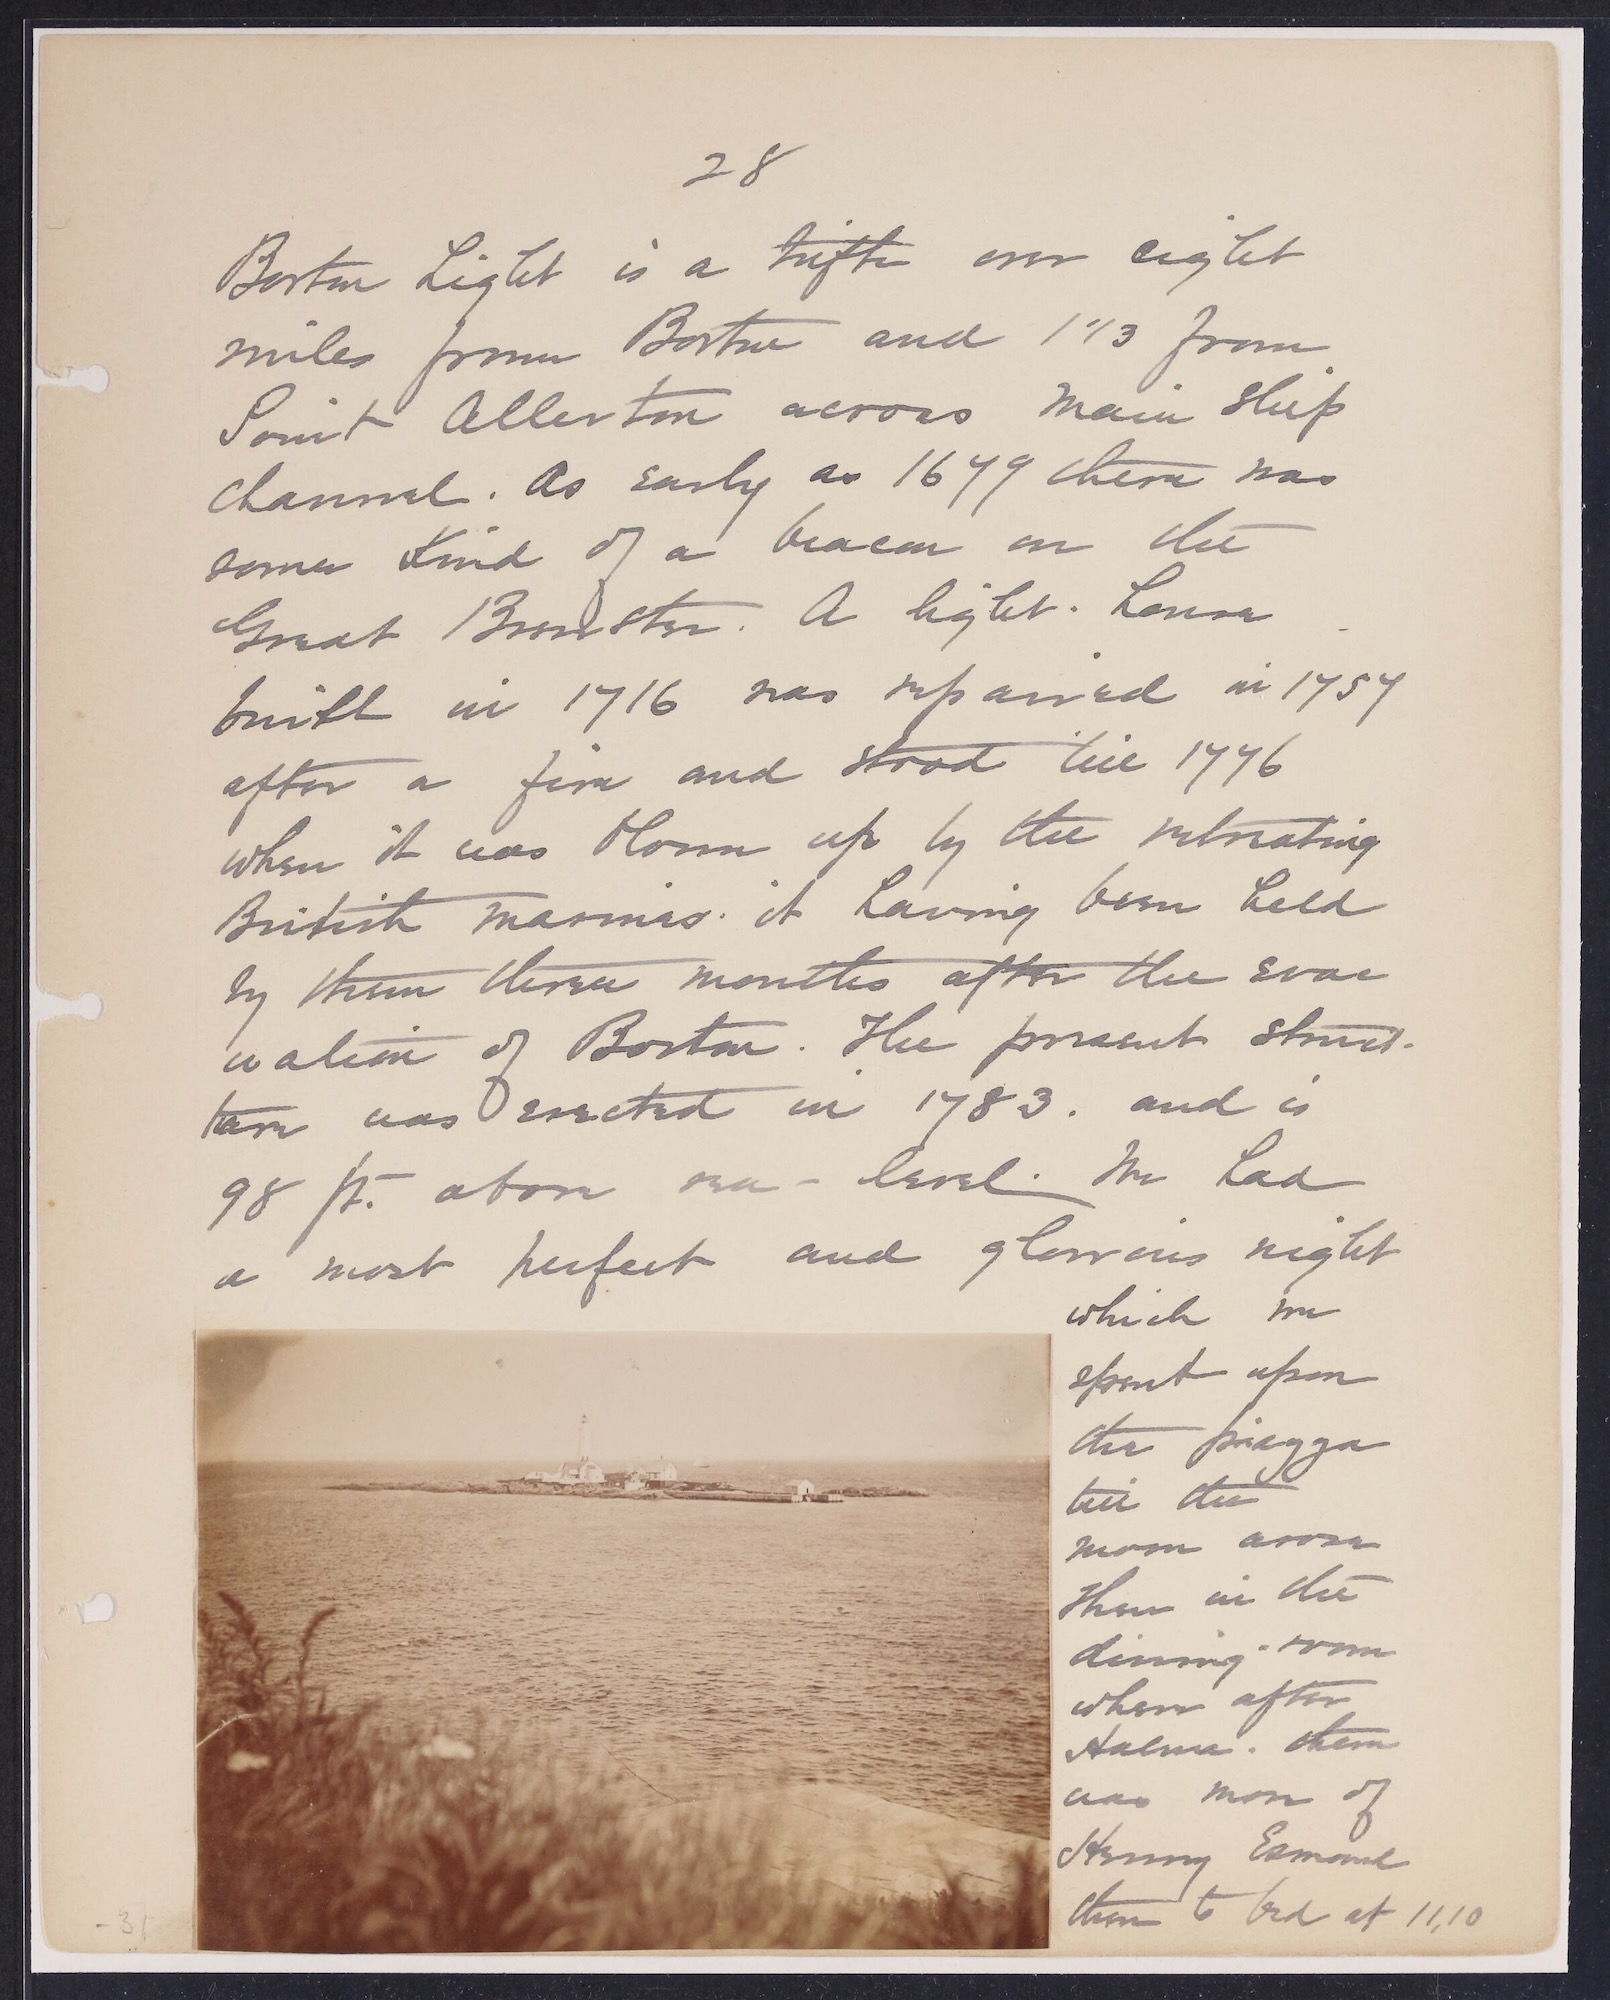 28
Boston Light is a trifle over eight
miles from Boston and 1 1/3 from
Point Allerton across main ship
channel. As early as 1679 there was
some kind of a beacon on the
Great Brewster. A light-house
built in 1716 was repaired in 1757
after a fire and stood till 1776
when it was blown up by the retreating
British marines. it having been held
by them three months after the evac
uation of Boston. The present struc-
ture was erected in 1783. and is
98 ft. above sea-level. We had
a most perfect and glorious night
which we
spent upon
the piazza
till the
moon arose
then in the
dining-room
where after
Halma. there
was more of
Henry Esmond
then to bed at 11,10